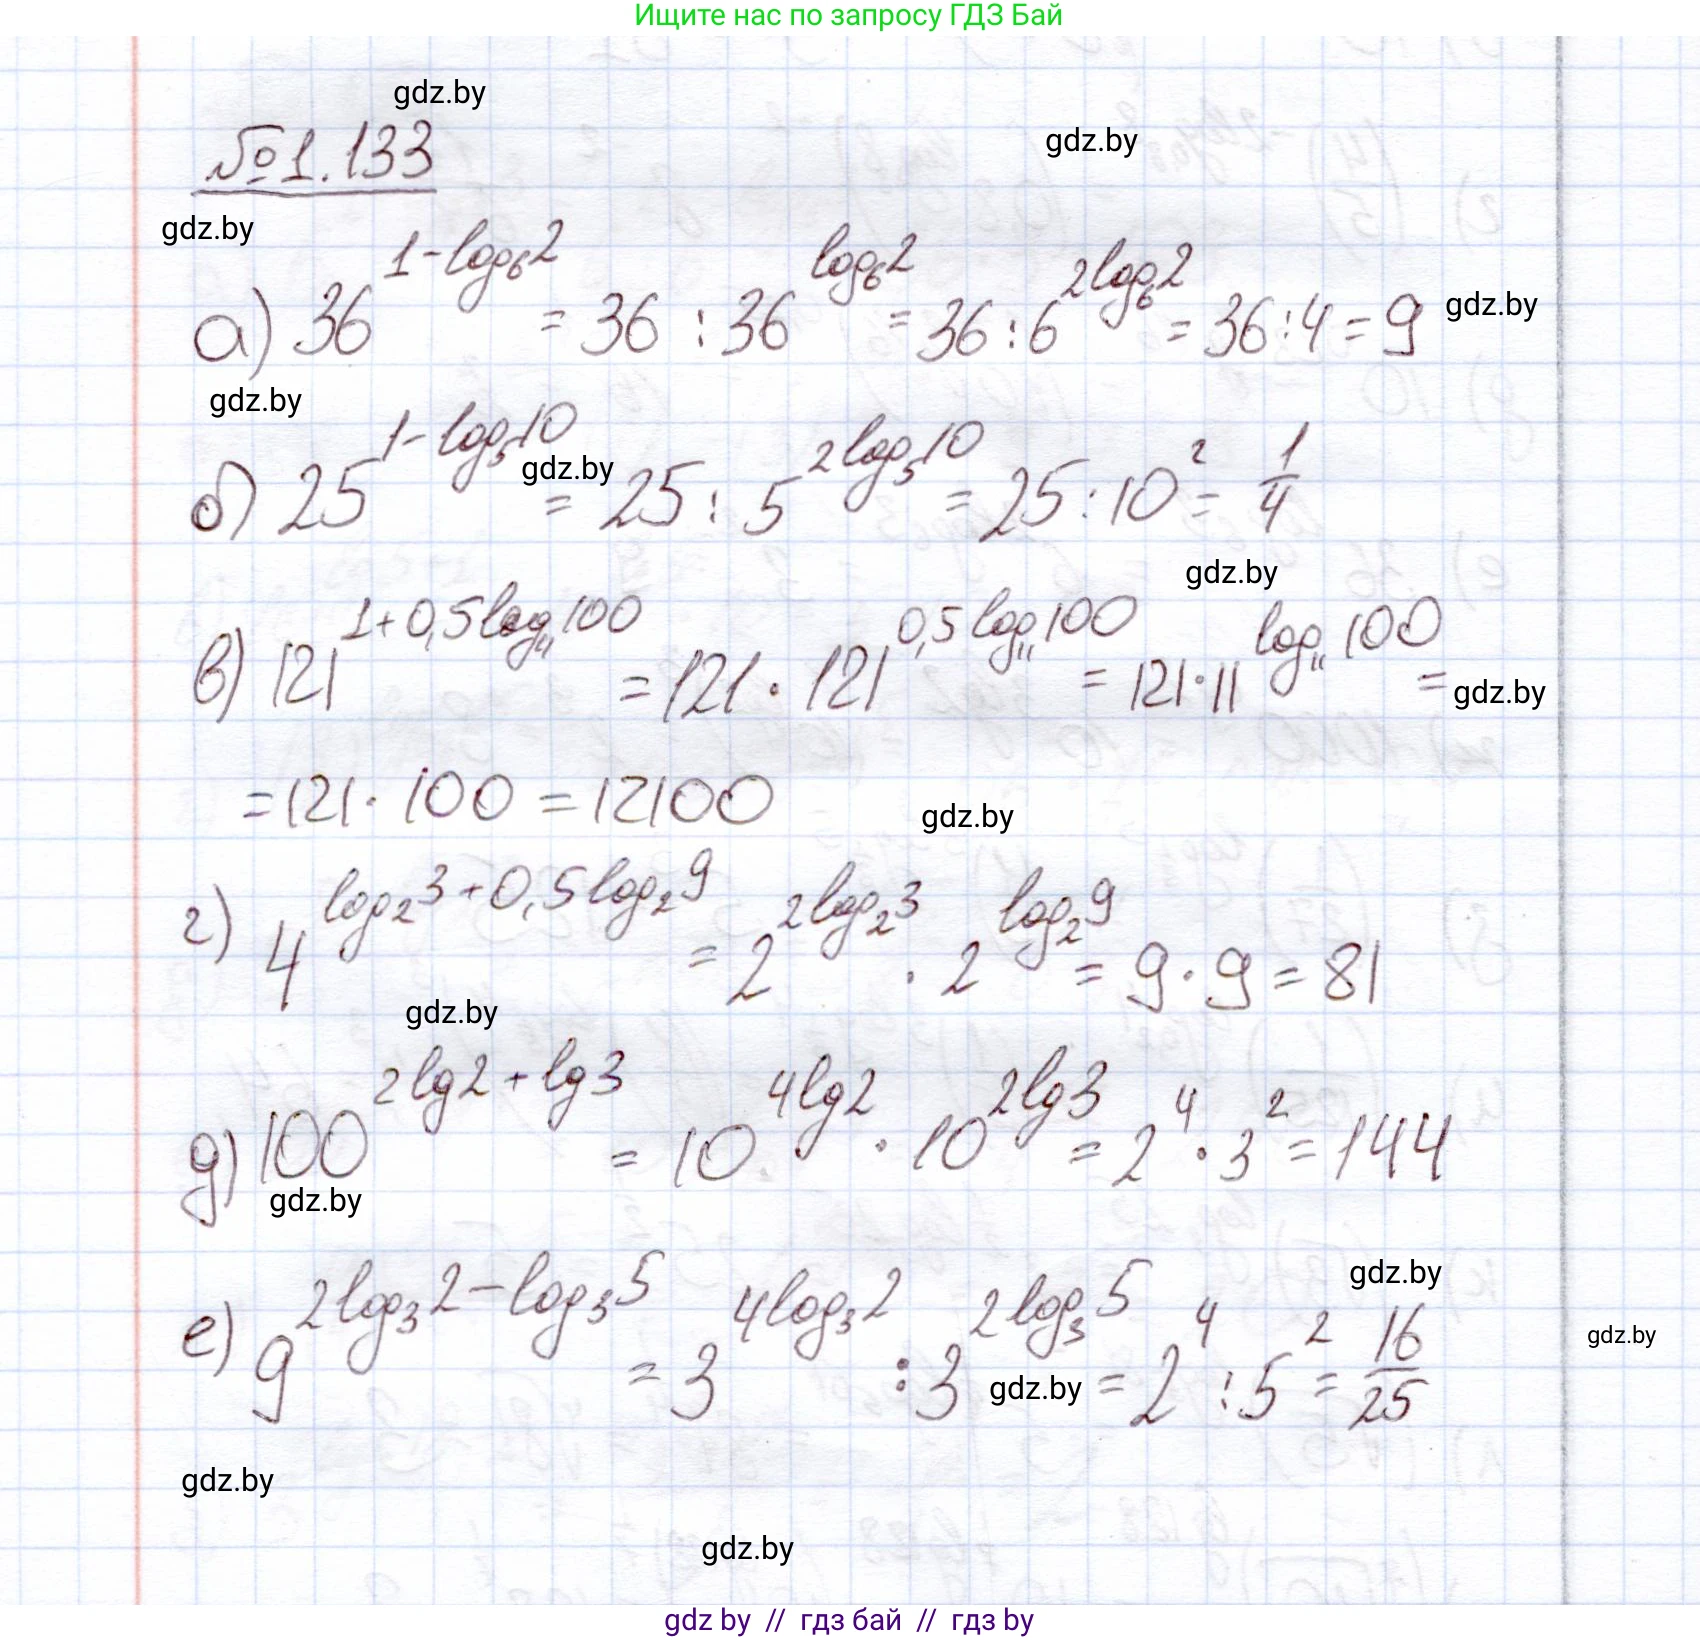 Ищите нас по запросу ГДЗ Бай
gdz.by
gdz.by
№1.133
gdz.by
а) 36^(1-log₆2) = 36 : 36^(log₆2) = 36 : 6^(2log₆2) = 36 : 4 = 9
gdz.by
gdz.by
б) 25^(1-log₅10) = 25 : 5^(2log₅10) = 25 : 10² = 1/4
gdz.by
gdz.by
в) 121^(1+0,5log₁₁100) = 121 · 121^(0,5log₁₁100) = 121 · 11^(log₁₁100) =
gdz.by
= 121 · 100 = 12100
gdz.by
г) 4^(log₂3+0,5log₂9) = 2^(2log₂3) · 2^(log₂9) = 9 · 9 = 81
gdz.by
д) 100^(2lg2+lg3) = 10^(4lg2) · 10^(2lg3) = 2⁴ · 3² = 144
gdz.by
gdz.by
е) 9^(2log₃2-log₃5) = 3^(4log₃2) : 3^(2log₃5) = 2⁴ : 5² = 16/25
gdz.by
gdz.by
gdz.by
gdz.by
gdz by // гдз бай // гдз by